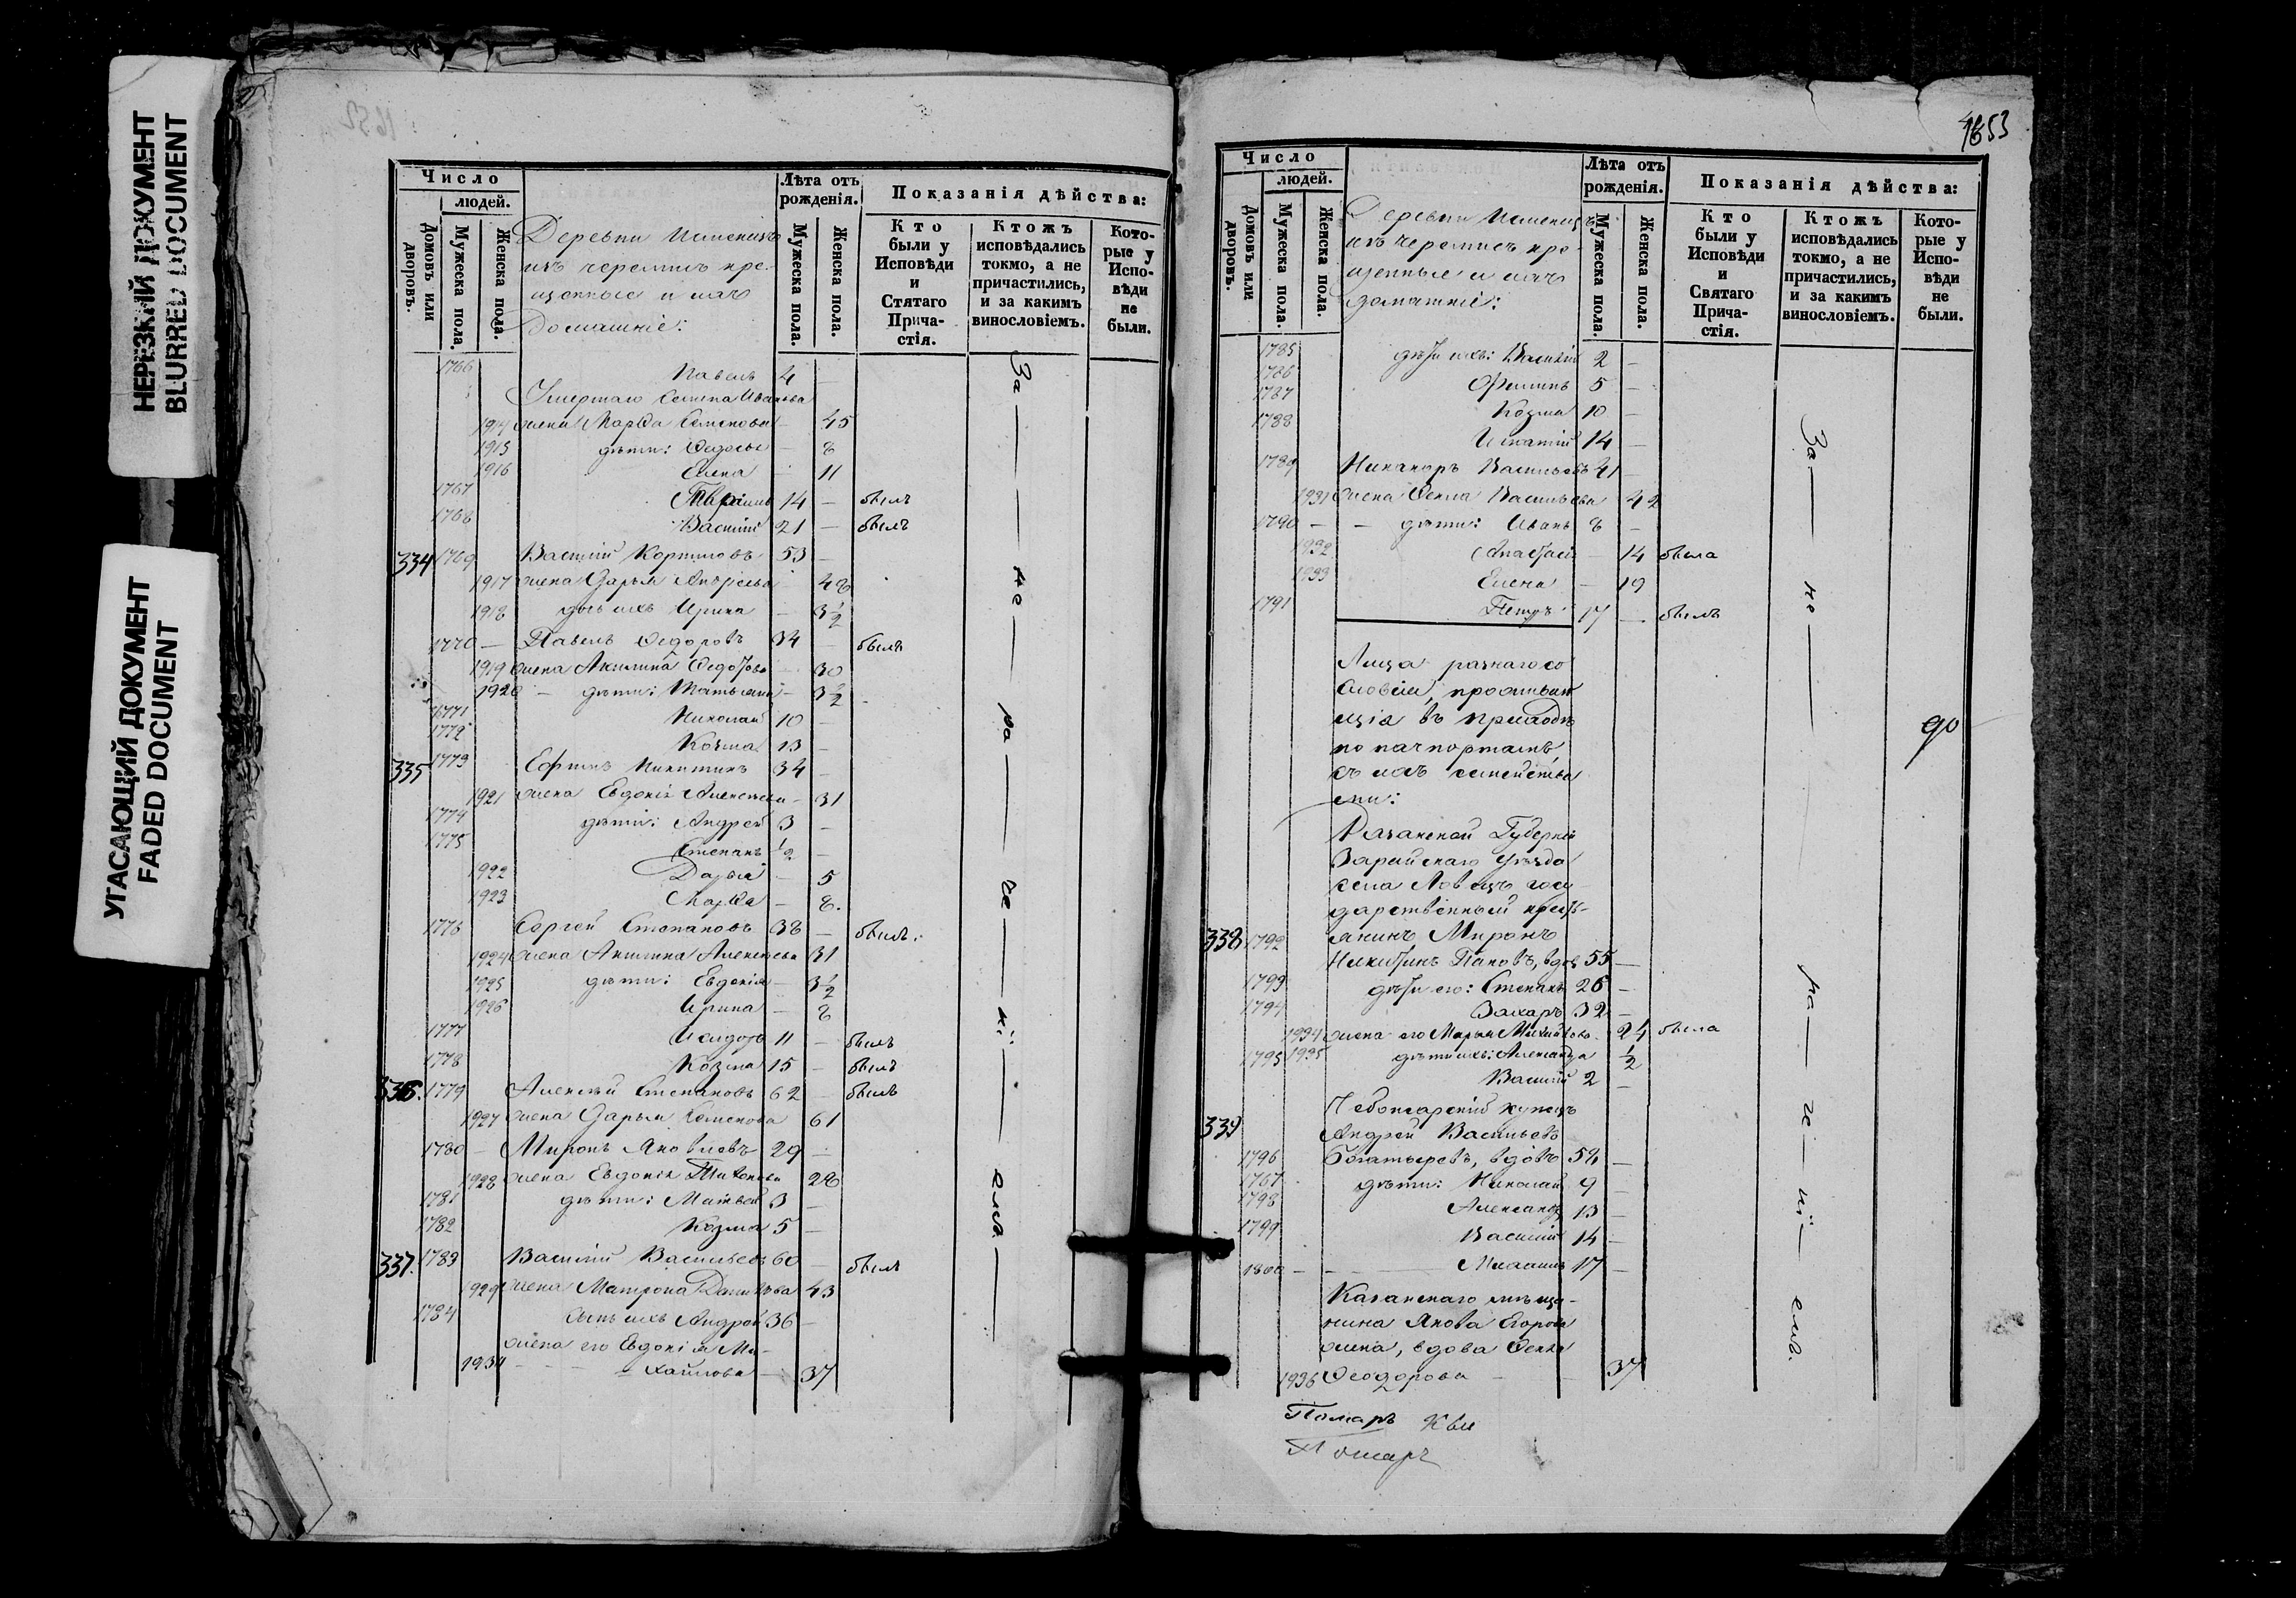 НЕРЕЗКИЙ ДОКУМЕНТ
BLURRED DOCUMENT
УГАСАЮЩИЙ ДОКУМЕНТ
FADED DOCUMENT
Число
людей.
Домовъ или дворовъ.
Мужеска пола.
Женска пола.
Деревни
изъ черемисъ кре-
щенные и ихъ
Домашніе:
Лѣта отъ рожденія.
Мужеска пола.
Женска пола.
Показанія дѣйства:
Кто были у Исповѣди и Стятаго Прича-стія.
Ктожъ исповѣдались токмо, а не причастились, и за какимъ винословіемъ.
Кото-рые у Испо-вѣди не были.
1766 Павелъ 4 —
Умершаго Семена Иванова
1914 жена Марѳа Семенова — 45
1915 дѣти: Ѳедосья — 8
1916 Елена — 11
1767 14 — былъ
1768 Василій 21 — былъ
334 1769 Василій 53 —
1917 жена Дарья Андреева — 48
1918 дочь ихъ Ирина — 3½
1770 — Павелъ Ѳедоровъ 34 — былъ
1919 жена Акилина Ѳедотова 30
1920 — дѣти: Татьяна — 3½
1771 Николай 10 —
1772 Козма 13 —
335 1773 Ефимъ Никитинъ 34 —
1921 жена Евдокія Алексѣева — 31
1774 дѣти: Андрей 3 —
1775 Степанъ ½ —
1922 Дарья — 5
1923 Марѳа — 8.
1776 Сергей Степановъ 38 — былъ.
1924 жена Акилина Алексѣева 31
1925 дѣти: Евдокія — 3½
1926 Ирина — 8
1777 Исидоръ 11 — былъ
1778 Козма 15 — былъ
336. 1779 Алексѣй Степановъ 62 — былъ
1927 жена Дарья Семенова 61
1780 — Миронъ Яковлевъ 29 —
1928 жена Евдокія 28
1781 дѣти: Матвей 3 —
1782 Козма 5 —
337. 1783 Василій Васильевъ 60 — былъ
1929 жена Матрона Данилова 43
1784 сынъ ихъ Андрей 36 —
жена его Евдокія Ми-
хайлова — 37
За — не — ра — че — ні — емъ. —
1653
Число
людей.
Домовъ или дворовъ.
Мужеска пола.
Женска пола.
Деревни
изъ черемисъ кре-
щенные и ихъ
домашніе:
Лѣта отъ рожденія.
Мужеска пола.
Женска пола.
Показанія дѣйства:
Кто были у Исповѣди и Святаго Прича-стія.
Ктожъ исповѣдались токмо, а не причастились, и за какимъ винословіемъ.
Кото-рые у Испо-вѣди не были.
1785 дѣти ихъ: Василій 2 —
1786 Филипъ 5 —
1787 Козма 10 —
1788 Игнатій 14 —
1789 Никаноръ Васильевъ 41 —
1931 жена Ѳекла Васильева 42
1790 — — дѣти: Иванъ 8 —
1932 Анастасія — 14 была
1933 Елена — 19
1791 Петръ 17 — былъ
Лица разнаго со
словія, проживаю
щія въ приходѣ
по пачпортамъ
съ ихъ семейства
ми:
Рязанской Губерніи
Зарайскаго уѣзда
села Ловецъ госу-
дарственный кресть-
338 1792 янинъ Миронъ
Никитинъ Пановъ, вдов 55 —
1793 дѣти его: Степанъ 26 —
1794 Захаръ 32 —
1934 жена его Марья Михайлова 24 была
1795 1935 дѣти ихъ: Александра ½
Василій 2 —
Чебоксарскій купецъ
339 Андрей Васильевъ
1796 Богатыревъ, вдовъ 54 —
1767 дѣти: Николай 9 —
1798 Александръ 13 —
1799 Василій 14 —
1800 — — Михаилъ 17 —
Казанскаго мѣща-
нина Якова Егорова
жена, вдова Ѳекла
1936 Ѳеодорова — 37
За — не — ра — че — ні — емъ.
до